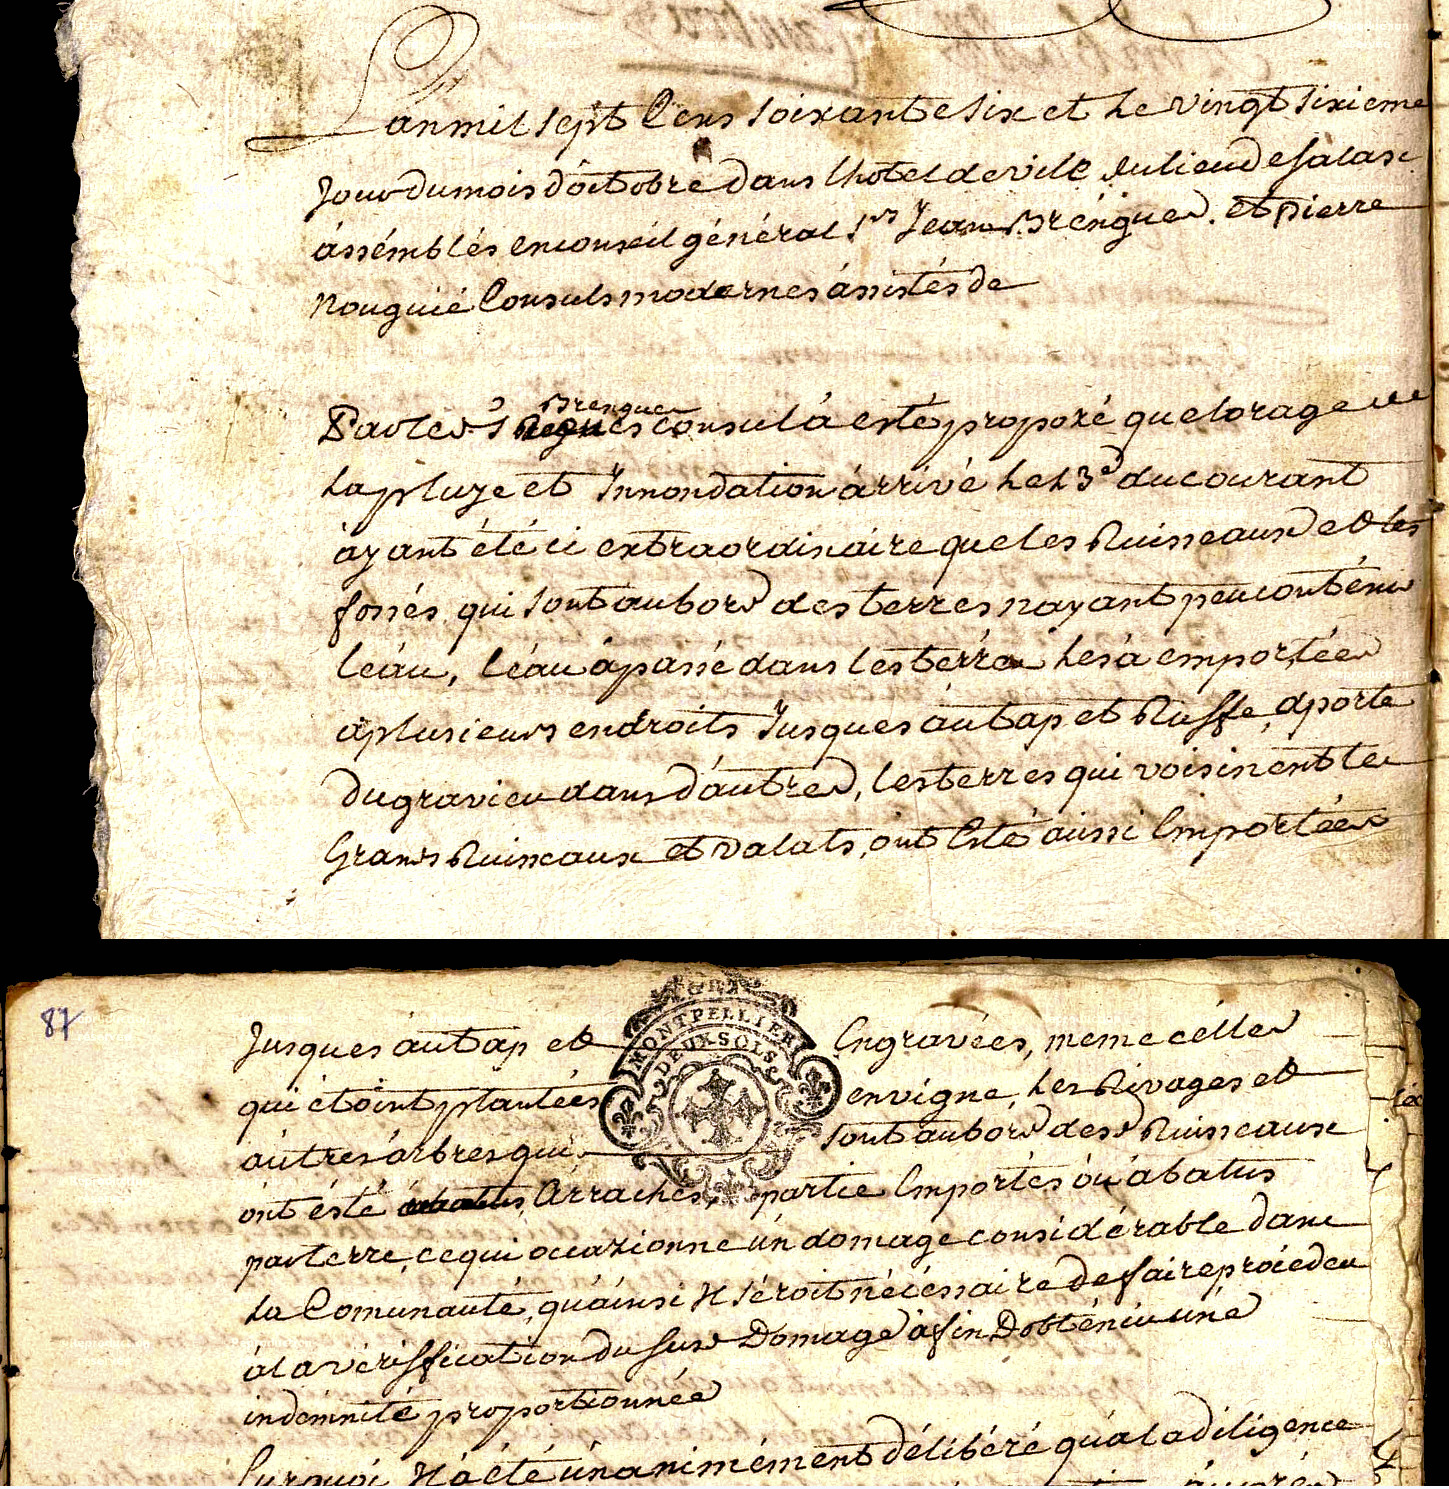 Lan mil sept Cens soixante six et Le vingt sixieme
Jour du mois d'octobre dans lhotel de ville du lieu de Salasc
ássémblés en conseil général Srs Jean Brénguer. et pierre
Nouguié Consuls modernes ássistés de
Par le Sr Brenguer consul á esté proposé que lorage
La pluye et Innondation árrivé Le 13e du courant
áyant été ci extraordinaire que les Ruisseaux et les
fossés qui sont au bord des terres nayant peu conténir
léau, léau á passé dans les terres Les á emportées
á plusieurs endroits Jusques áu tap et Ruffe, áporté
du gravier dans d'áutres, les terres qui voisinent les
Grands Ruisseaux et valats, ont Esté áussi Emportées
87
Jusques áu tap et Engravées, meme célles
MONTPELLIER
DEUX SOLS
qui étoint plantées en vigne, Les Rivages et
áutres árbres qui sont au bord des Ruisseaux
ónt ésté ábatus Arrachés, partie Emportés óu ábatus
par terre, ce qui occazionne ún domage considérable dans
La Comunauté, qu'áinsi Il séroit nécéssaire de faire procéder
á la vériffication du susd Domage áfin D'obténir úne
indémnité proportionnée
Surquoi Il á été únanimément délibéré qu'á la diligence